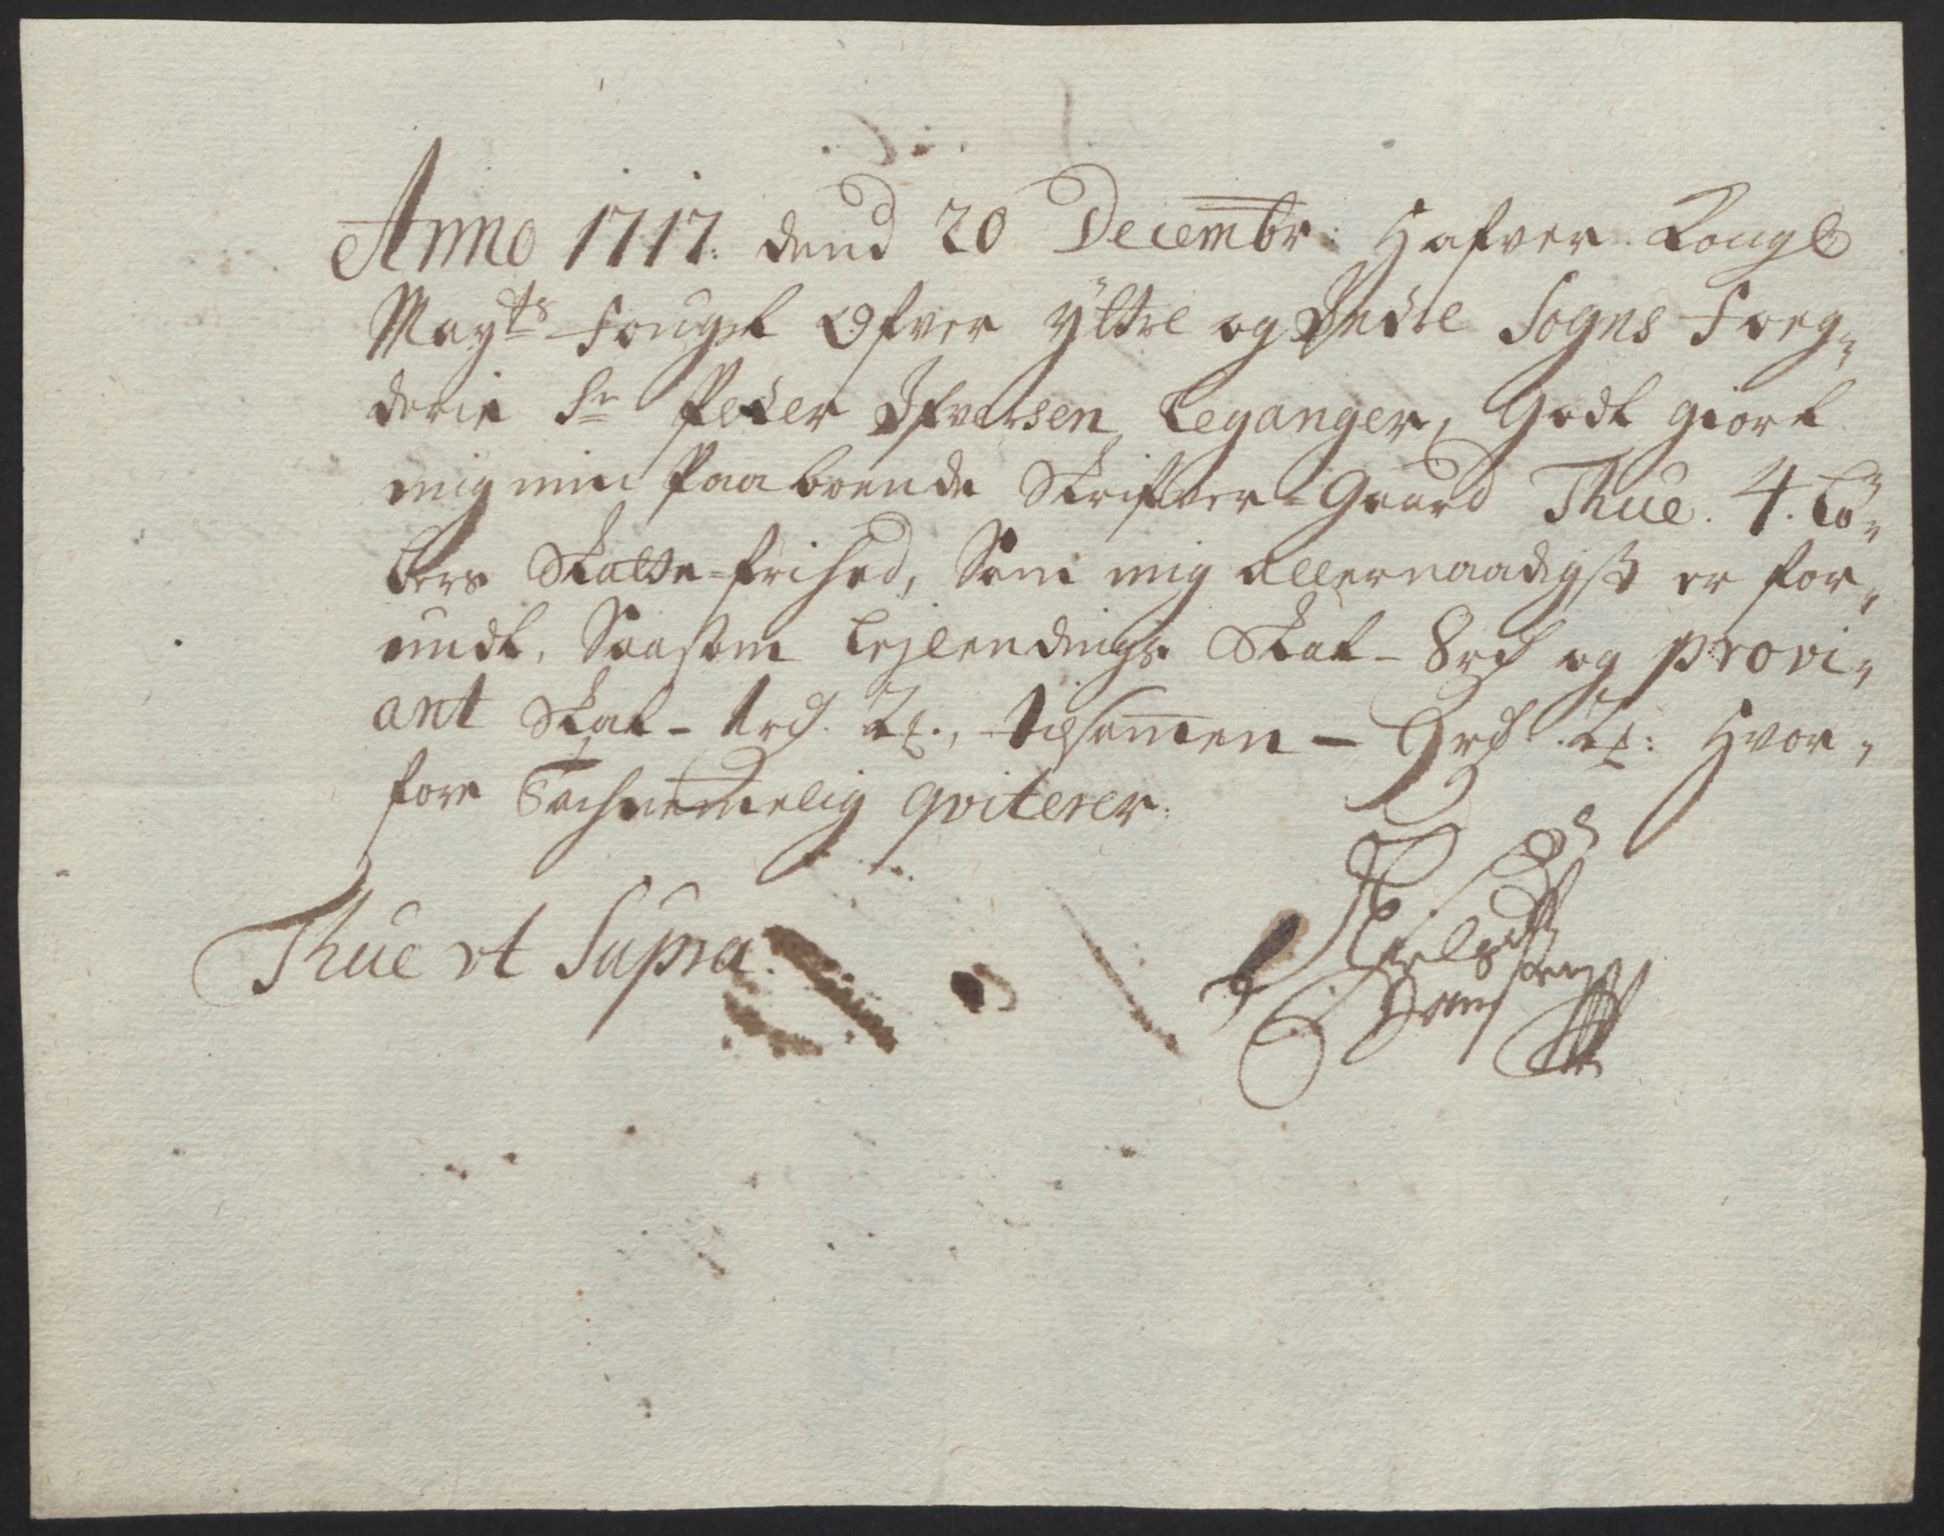 Anno 1717. dend 20 Decembr: Hafver Kongl
Mayts Fougt Ofver yttre og Indre Sogns Foeg„
derie Sr Peder Ifversen Leganger, Godt giort
mig min Paaboende Skrifver-Gaard Thue. 4. Lö„
bers Skatte-frihed, Som mig allernaadigst er for„
undt, Saasom Lejlendings Skat - 8rd og provi„
ant Skat - 1rd. 2₰., tilsammen - 9rd. 2₰: Hvor„
fore Tachnemelig qviterer.
Thue ut Supra.